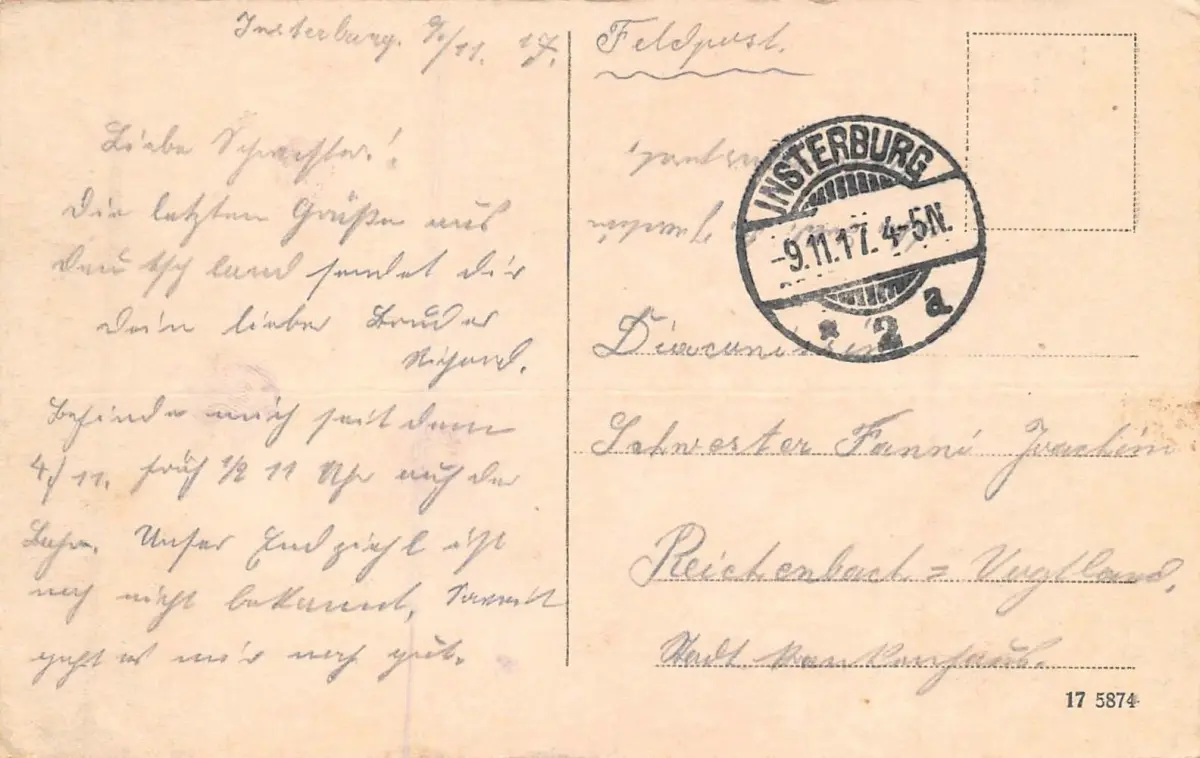 Insterburg. 9/11. 17.
Liebe Schwester!
Die letzten Grüße aus
Deutschland sendet dir
dein lieber Bruder
Richard.
Befinde mich seit dem
4./11. früh 1/2 11 Uhr auf der
Bahn. Unser Endziehl ist
noch nicht bekannt, Soweit
geht es mir noch gut.
Feldpost.
INSTERBURG
-9.11.17. 4-5N.
* 2 a
Diaconissin
Schwester Fanni Joachim
Reichenbach = Vogtland,
Stadt Krankenhaus.
17 5874